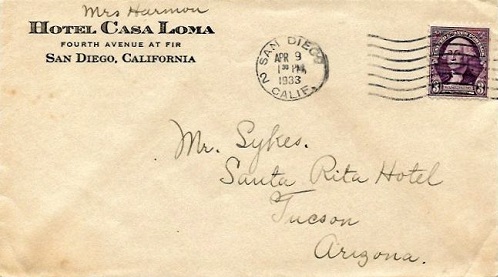 Mrs Harmon
HOTEL CASA LOMA
FOURTH AVENUE AT FIR
SAN DIEGO, CALIFORNIA
SAN DIEGO
APR 9
1 30 PM
1933
2 CALIF.
3 3
Mr. Sykes.
Santa Rita Hotel
Tucson
Arizona.